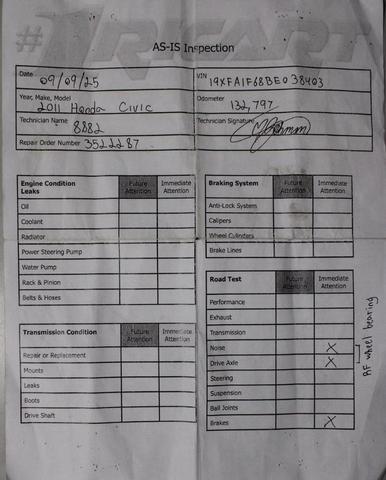 #1 RICART
AS-IS Inspection
Date 09/09/25
VIN 19XFA1F68BE038403
Year, Make, Model 2011 Honda Civic
Odometer 132,797
Technician Name 8882
Technician Signature
Repair Order Number 3522287
Engine Condition
Leaks
Future Attention
Immediate Attention
Oil
Coolant
Radiator
Power Steering Pump
Water Pump
Rack & Pinion
Belts & Hoses
Transmission Condition
Future Attention
Immediate Attention
Repair or Replacement
Mounts
Leaks
Boots
Drive Shaft
Braking System
Future Attention
Immediate Attention
Anti-Lock System
Calipers
Wheel Cylinders
Brake Lines
Road Test
Future Attention
Immediate Attention
Performance
Exhaust
Transmission
Noise X
Drive Axle X
Steering
Suspension
Ball Joints
Brakes X
RF wheel bearing